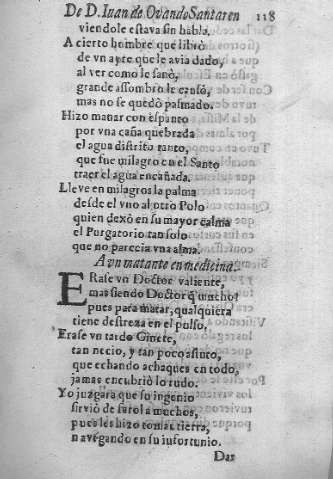 De D. Iuan de Ovando Santaren 118
viendole estava sin habla.
A cierto hombre que librò
de vn ayre que le avia dado,
al ver como le sanò,
grande assombro le causò,
mas no se quedò pasmado.
Hizo manar con espanto
por vna caña quebrada
el agua distrito tanto,
que fue milagro en el Santo
traer el agua encañada.
Lleve en milagros la palma
desde el vno al otro Polo
quien dexò en su mayor calma
el Purgatorio tan solo
que no parecia vna alma.
A vn matante en medicina.
ERase vn Doctor valiente,
mas siendo Doctor q̃ mucho!
pues para matar, qualquiera
tiene destreza en el pulso,
Erase vn tardo Ginete,
tan necio, y tan poco astuto,
que echando achaques en todo,
jamas encubriò lo rudo.
Yo juzgàra que su ingenio
sirviò de farol a muchos,
pues les hizo tomar tierra,
navegando en su infortunio.
Dar